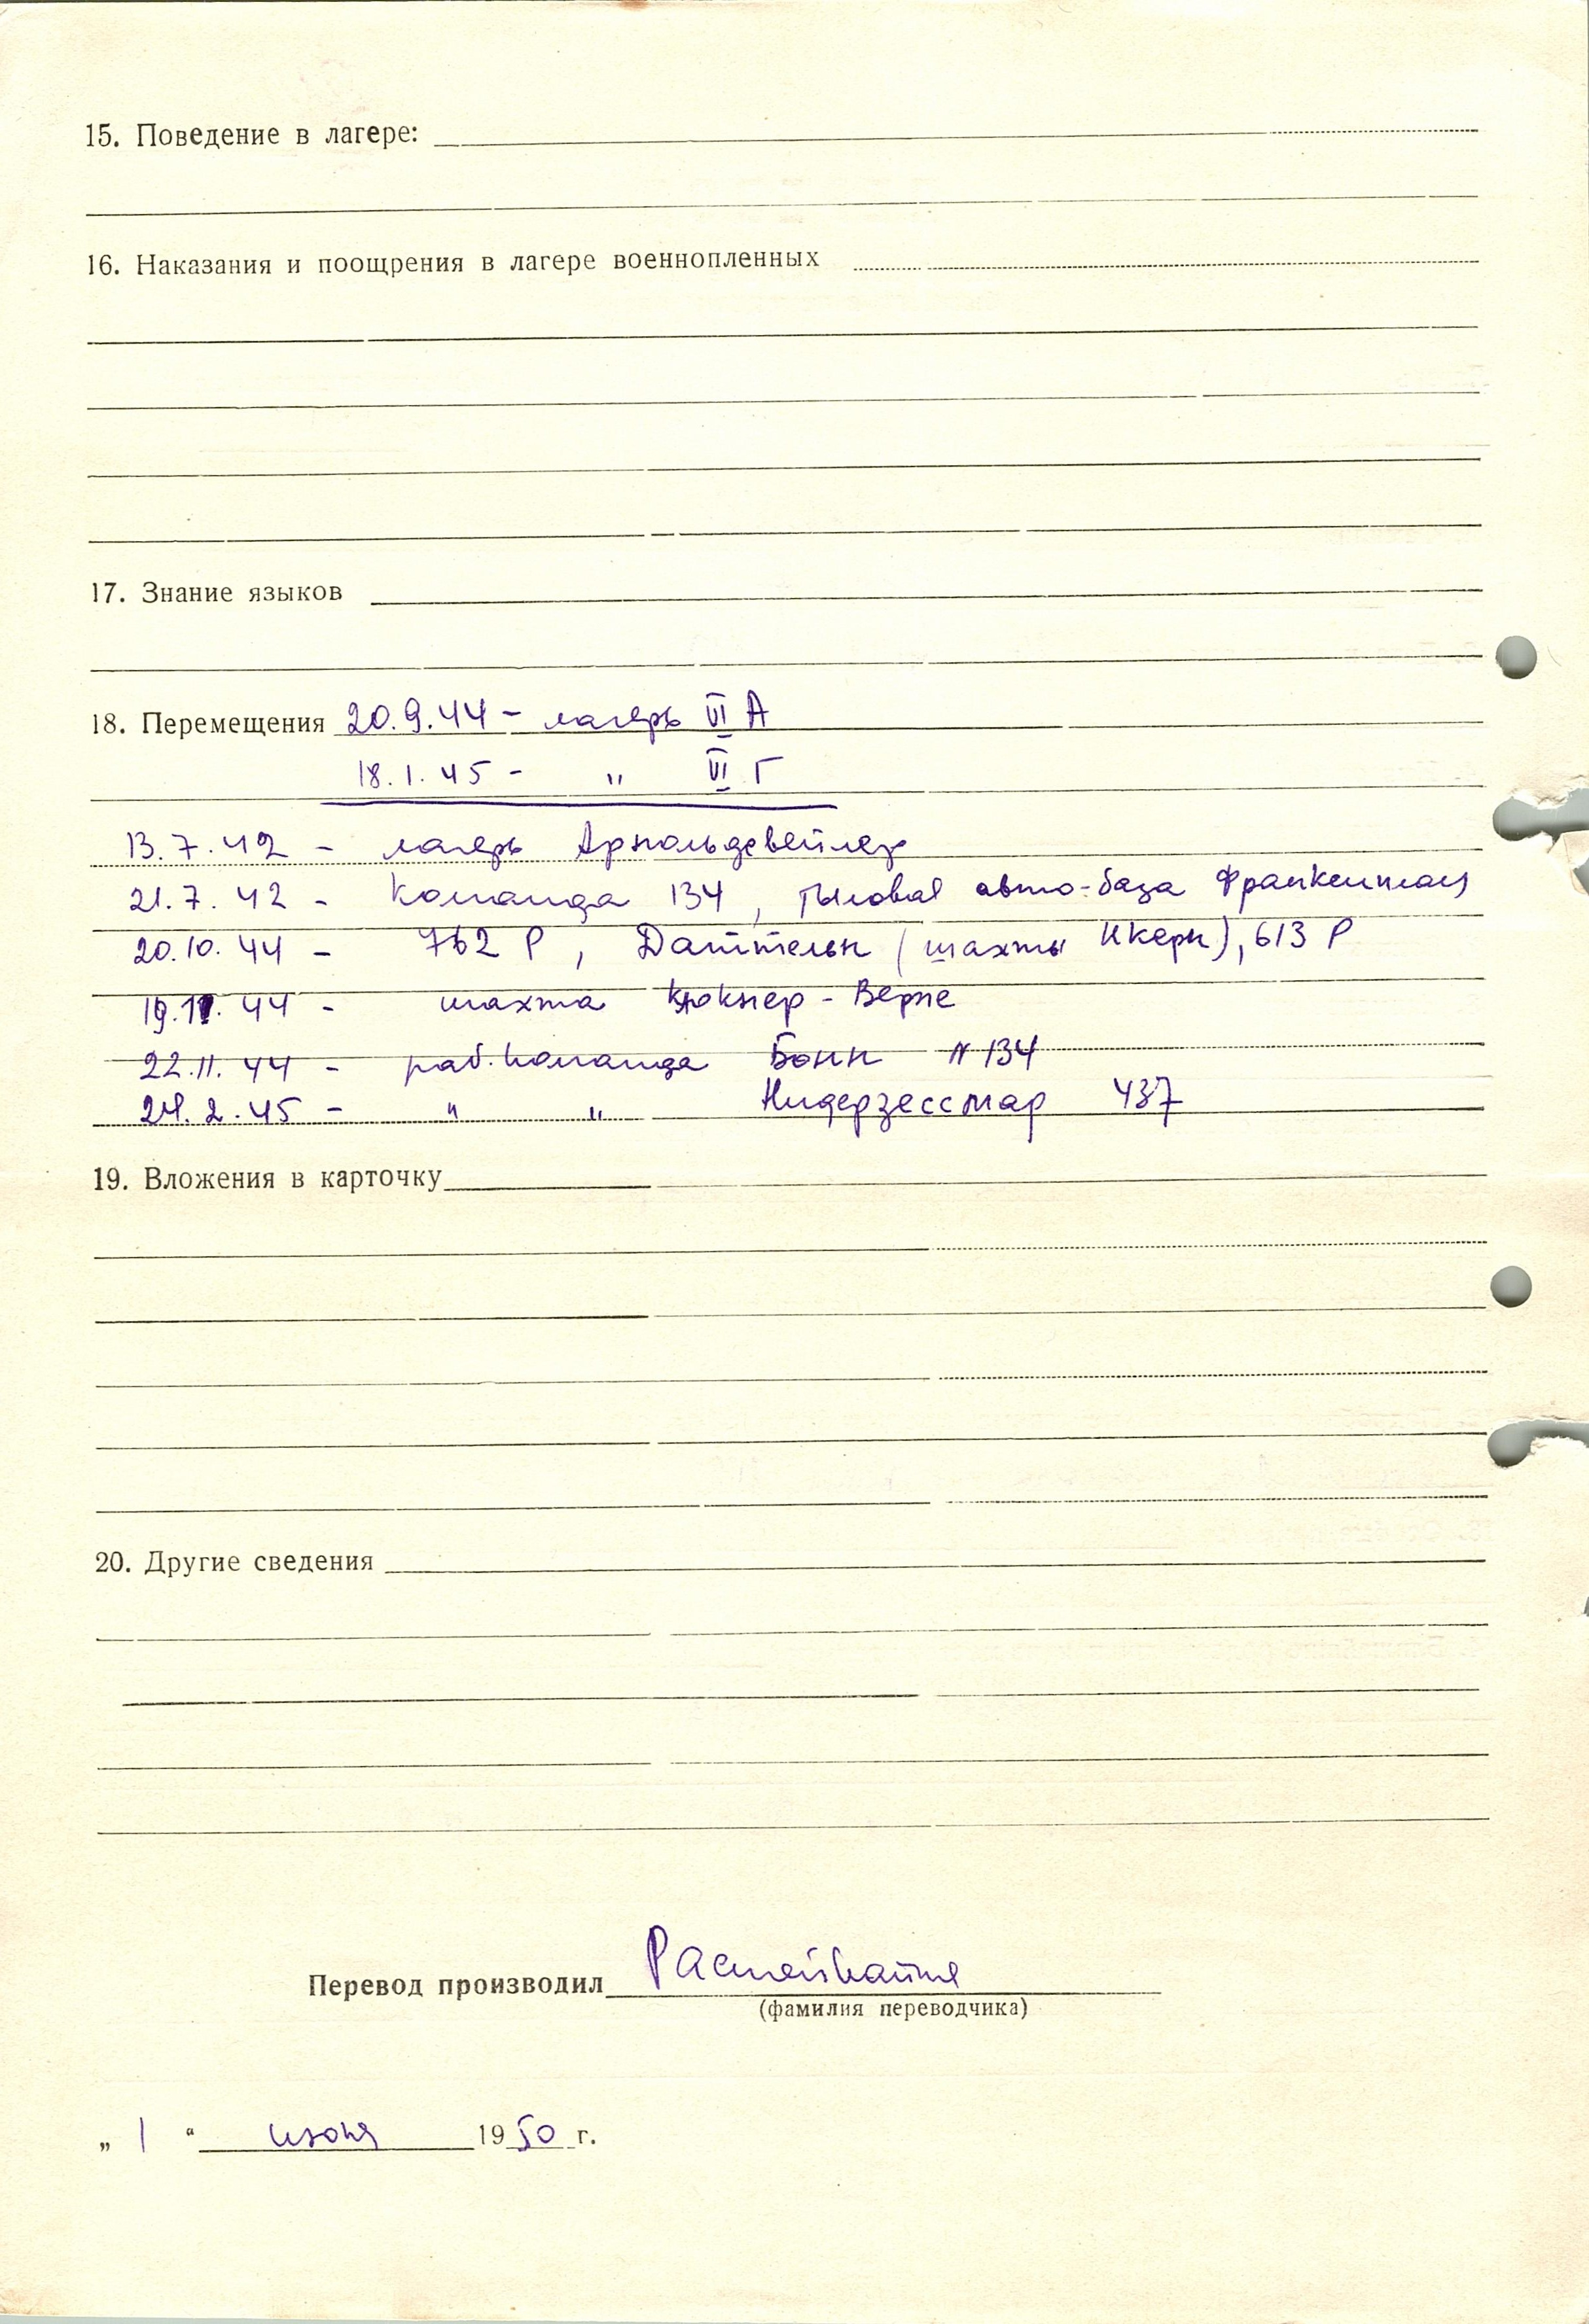 15. Поведение в лагере:
16. Наказания и поощрения в лагере военнопленных
17. Знание языков
18. Перемещения 20.9.44 - лагерь VI А
18.1.45 - " VI Г
13.7.42 - лагерь Арнольдсвейлер
21.7.42 - команда 134, тыловая авто-база Франкенталь
20.10.44 - 762 Р, Даттельн (шахты Икерн), 613 Р
19.11.44 - шахта Клокнер-Верне
22.11.44 - раб. команда Бонн № 134
24.2.45 - " " Нидерзессмар 437
19. Вложения в карточку
20. Другие сведения
Перевод производил
(фамилия переводчика)
„ 1 “ июня 1950 г.